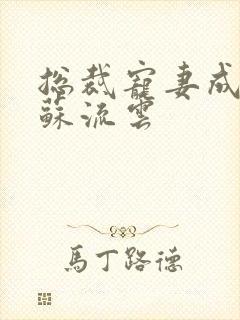 总裁寵妻成
蘇流雲
馬丁路德